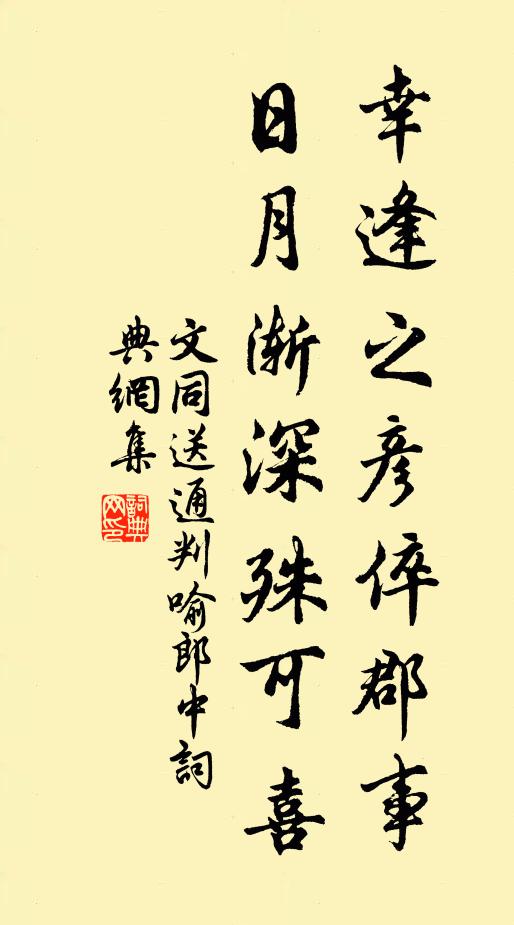 幸逢之彥倅郡事
日月漸深殊可喜
文同送通判喻郎中詞
典網集
詞典網印